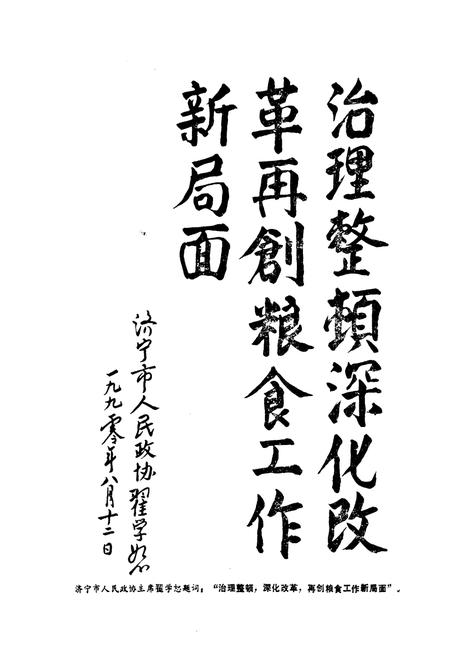 治理整頓深化改
革再創粮食工作
新局面
济宁市人民政协翟学恕
一九九零年八月十二日
济宁市人民政协主席翟学恕题词：“治理整顿，深化改革，再创粮食工作新局面”。